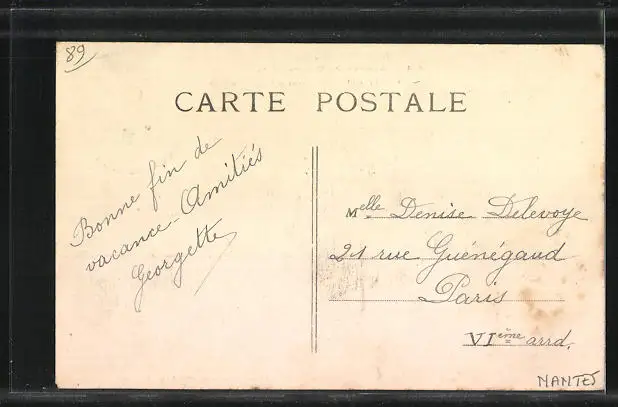 89
CARTE POSTALE
Bonne fin de
vacance - Amitiés
Georgette
Melle Denise Delevoye
21 rue Guénégaud
Paris
VIème arrd.
NANTES